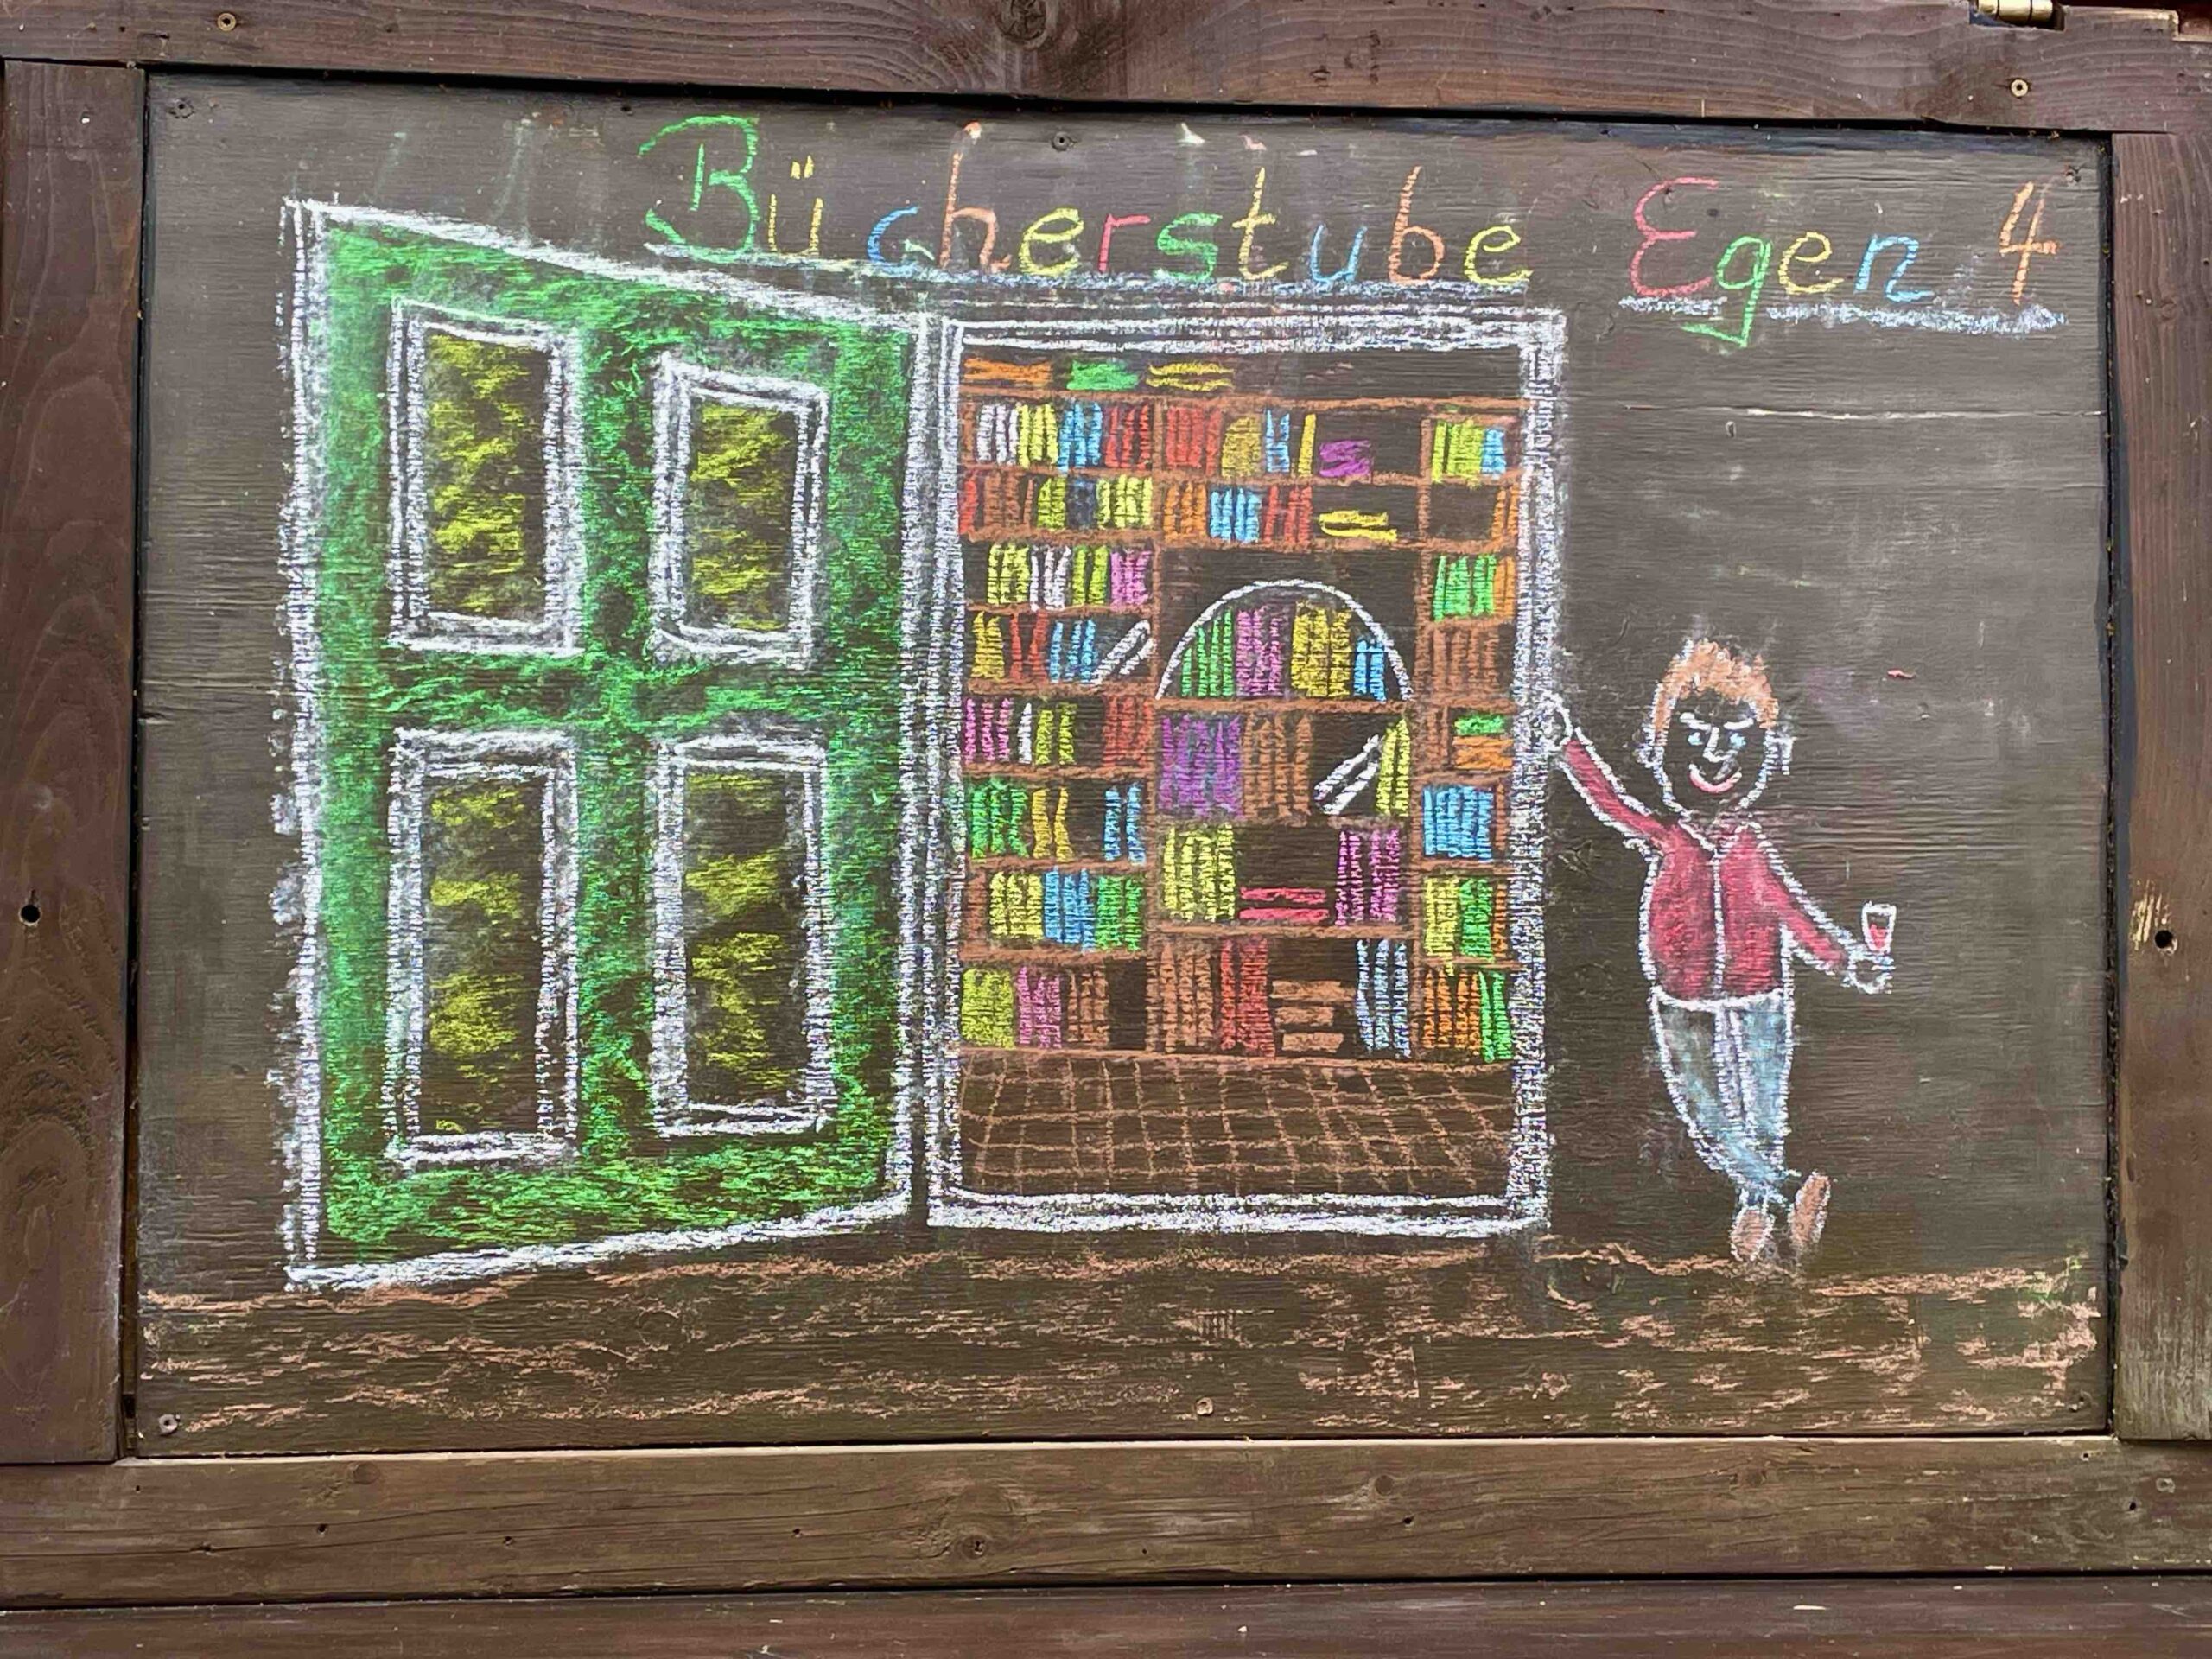 Bücherstube Egen 4